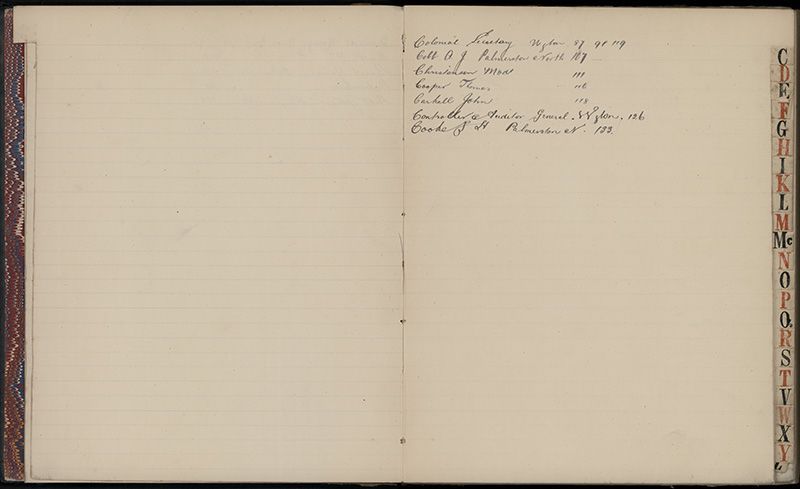 Colonial Secretary Wgton 87 98 119
Cobb A J Palmerston North 107
Christensen Mads 111
Cooper Thomas 116
Carkell John 118
Controller & Auditor General. Wgton. 126
Cooke J H Palmerston N. 133.
C
D
E
F
G
H
I
K
L
M
Mc
N
O
P
Q
R
S
T
V
W
X
Y